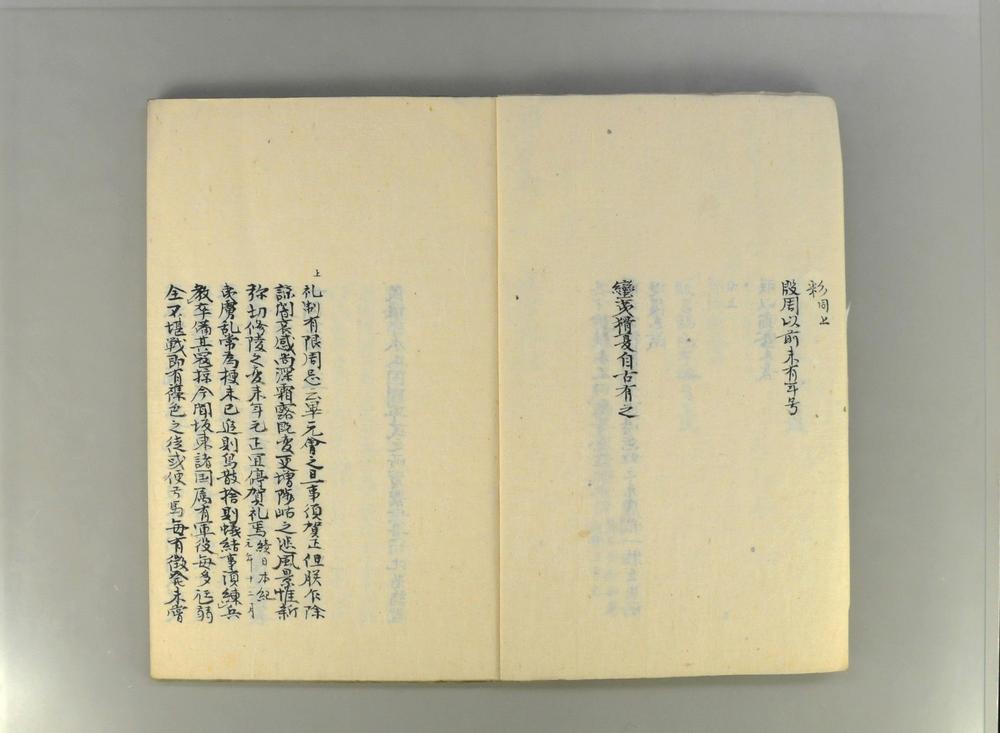 彩同上
殷周以前未有年号
蠻夷猾夏自古有之
上
礼制有限周忌云畢元會之旦事須賀正但朕乍除
諒闇哀感尚深霜露既変更增陟岵之悲風景惟新
弥切循陵之変来年元正宜停賀礼焉続日本紀
元年十二月
夷虜乱常為梗未已追則鳥散捨則蟻結事須練兵
教卒備其寇掠今聞坂東諸国属有軍役毎多尫弱
全不堪戦即有雑色之徒或便弓馬毎有徴発未嘗